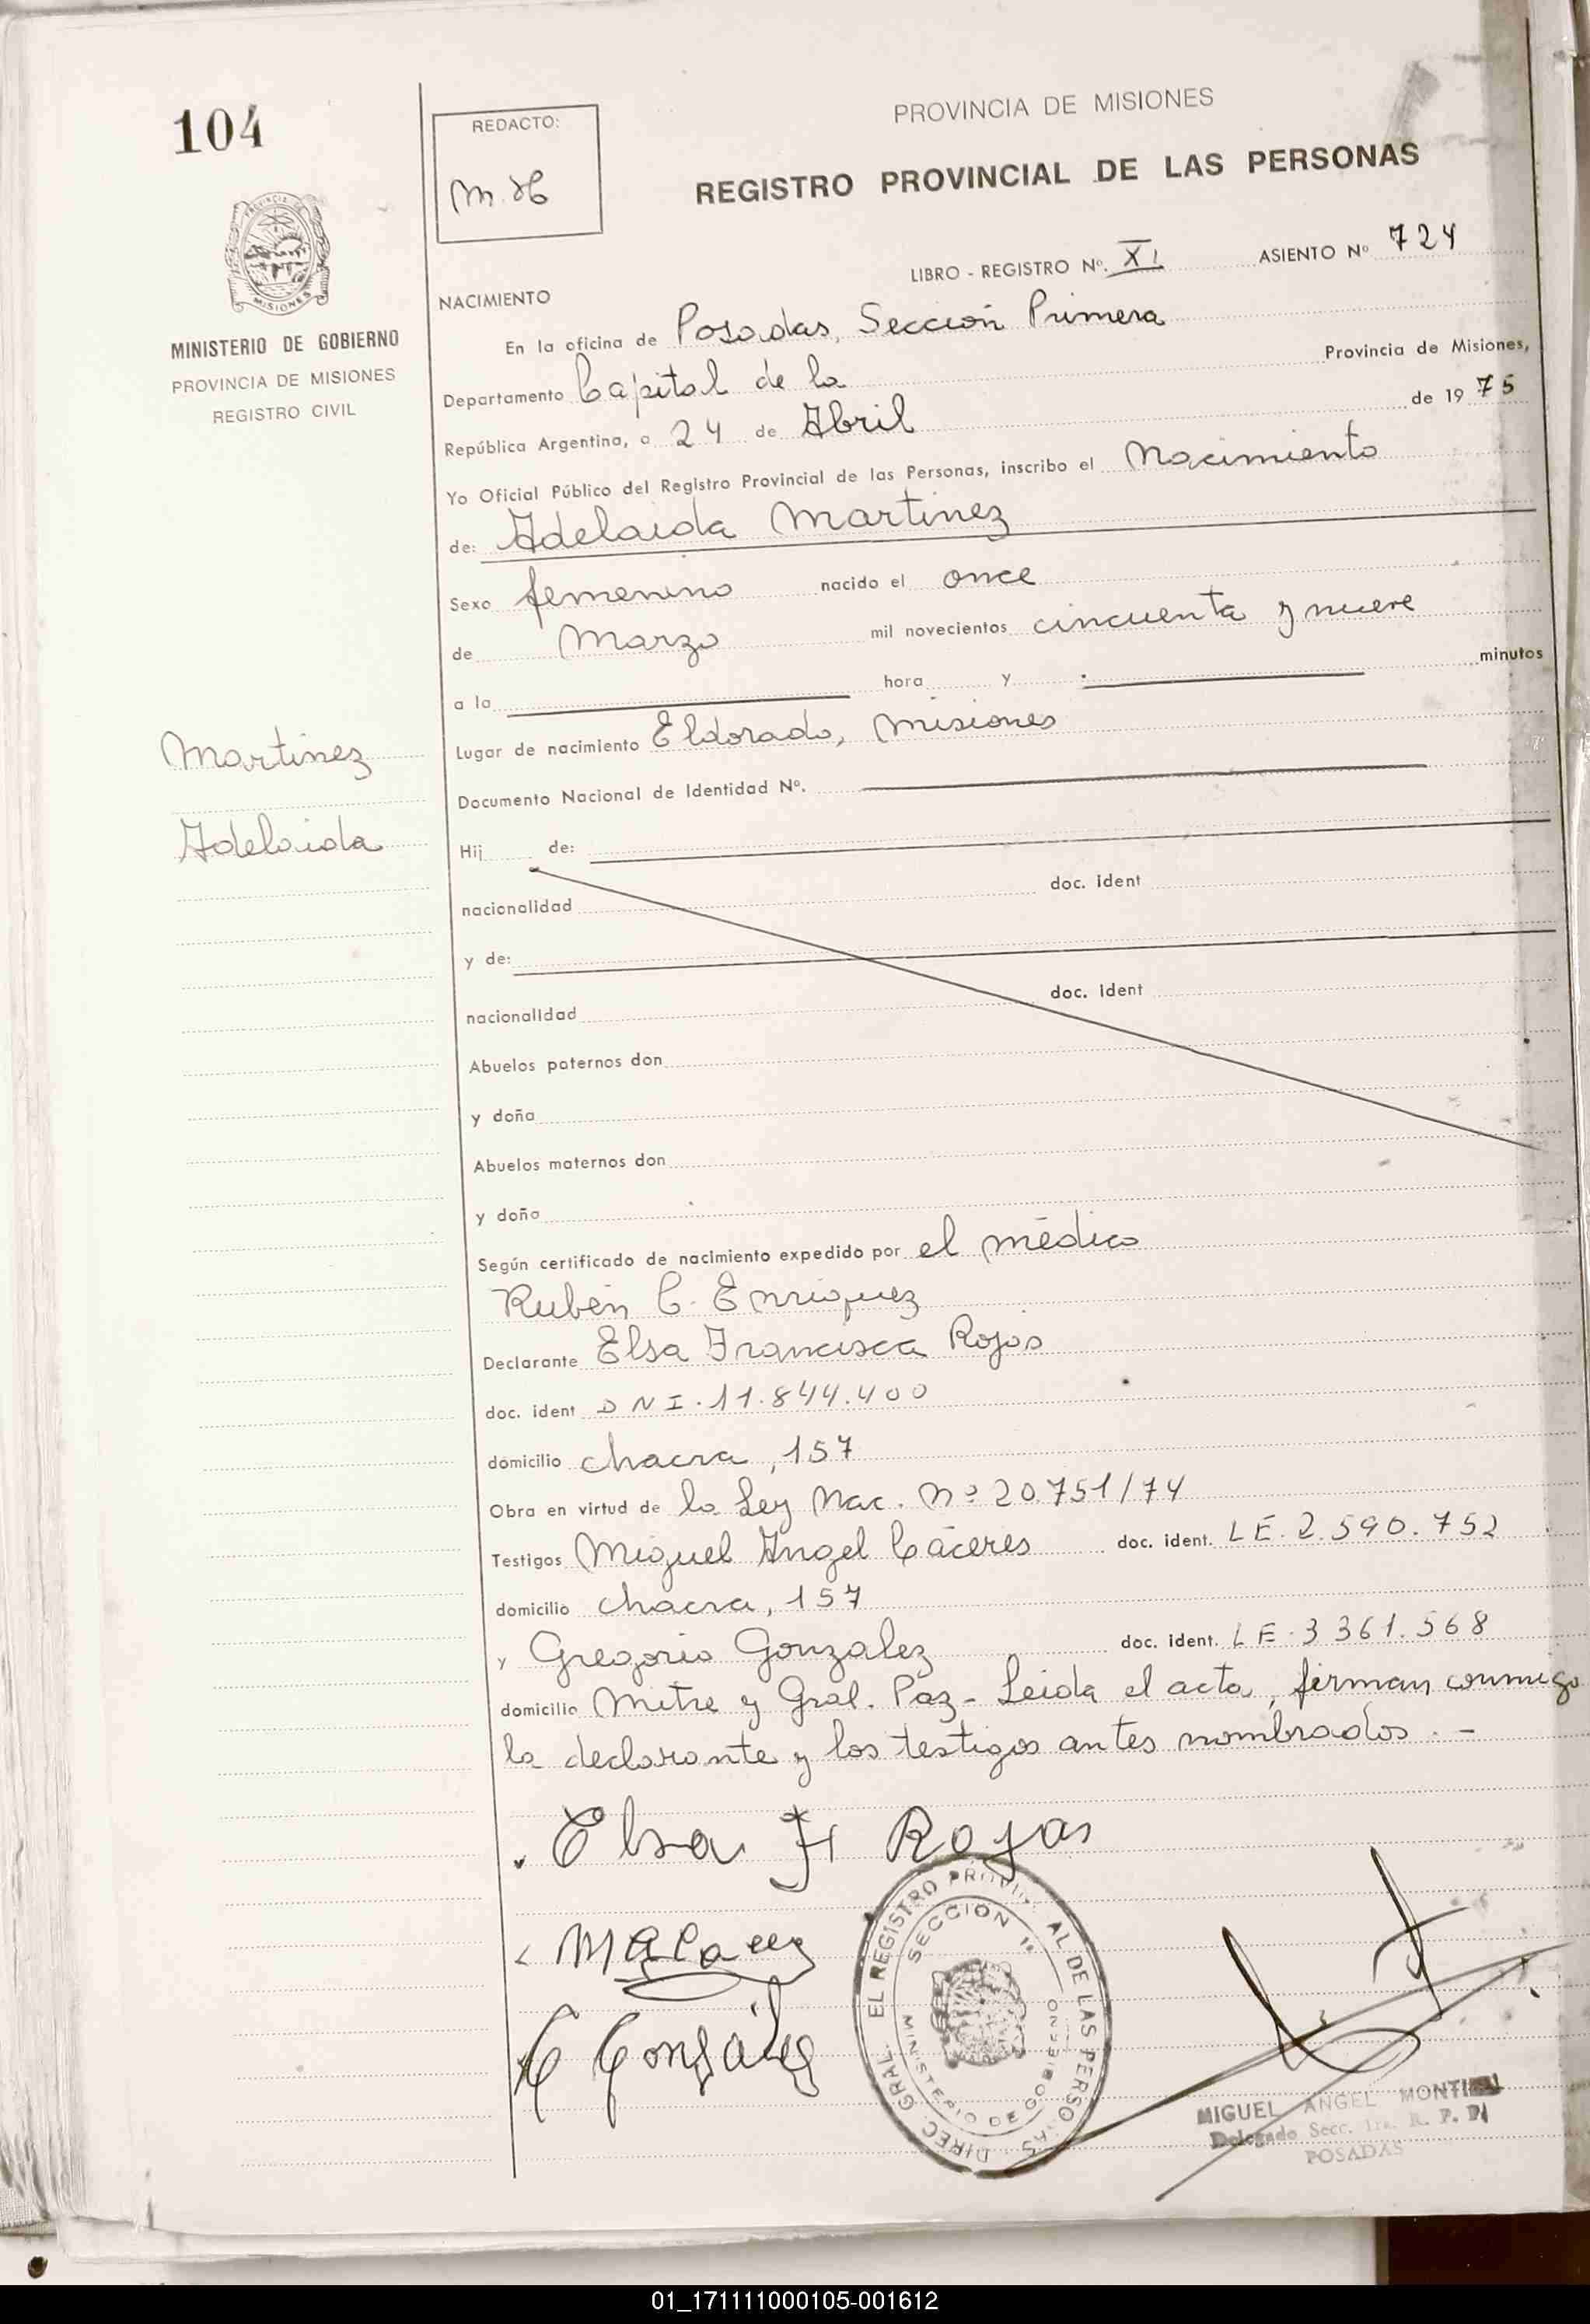 104
REDACTO:
M.H
PROVINCIA DE MISIONES
REGISTRO PROVINCIAL DE LAS PERSONAS
LIBRO - REGISTRO Nº. XI ASIENTO Nº 724
MISIONES
MINISTERIO DE GOBIERNO
PROVINCIA DE MISIONES
REGISTRO CIVIL
NACIMIENTO
En la oficina de Posadas, Sección Primera
Departamento Capital de la Provincia de Misiones,
República Argentina, a 24 de Abril de 1975
Yo Oficial Público del Registro Provincial de las Personas, inscribo el Nacimiento
de: Adelaida Martinez
Sexo femenino nacido el once
de Marzo mil novecientos cincuenta y nueve
a la hora y minutos
Lugar de nacimiento Eldorado, Misiones
Martinez
Adelaida
Documento Nacional de Identidad Nº.
Hij de:
nacionalidad doc. ident
y de:
nacionalidad doc. ident
Abuelos paternos don
y doña
Abuelos maternos don
y doña
Según certificado de nacimiento expedido por el médico
Rubén C. Enriquez
Declarante Elsa Francisca Rojas
doc. ident D N I. 11.844.400
domicilio chacra, 157
Obra en virtud de la Ley Nac. Nº 20.751/74
Testigos Miguel Angel Cáceres doc. ident. LE. 2.590.752
domicilio chacra, 157
y Gregorio Gonzalez doc. ident. LE. 3 361.568
domicilio Mitre y Gral. Paz - Leida el acta, firman conmigo
la declarante y los testigos antes nombrados. -
Elsa F Rojas
G González
DIREC. GRAL. EL REGISTRO PROVINCIAL DE LAS PERSONAS
SECCION 1ª
MINISTERIO DE GOBIERNO
MIGUEL ANGEL MONTIEL
Delegado Secc. 1ra. R. P. P.
POSADAS
01_171111000105-001612